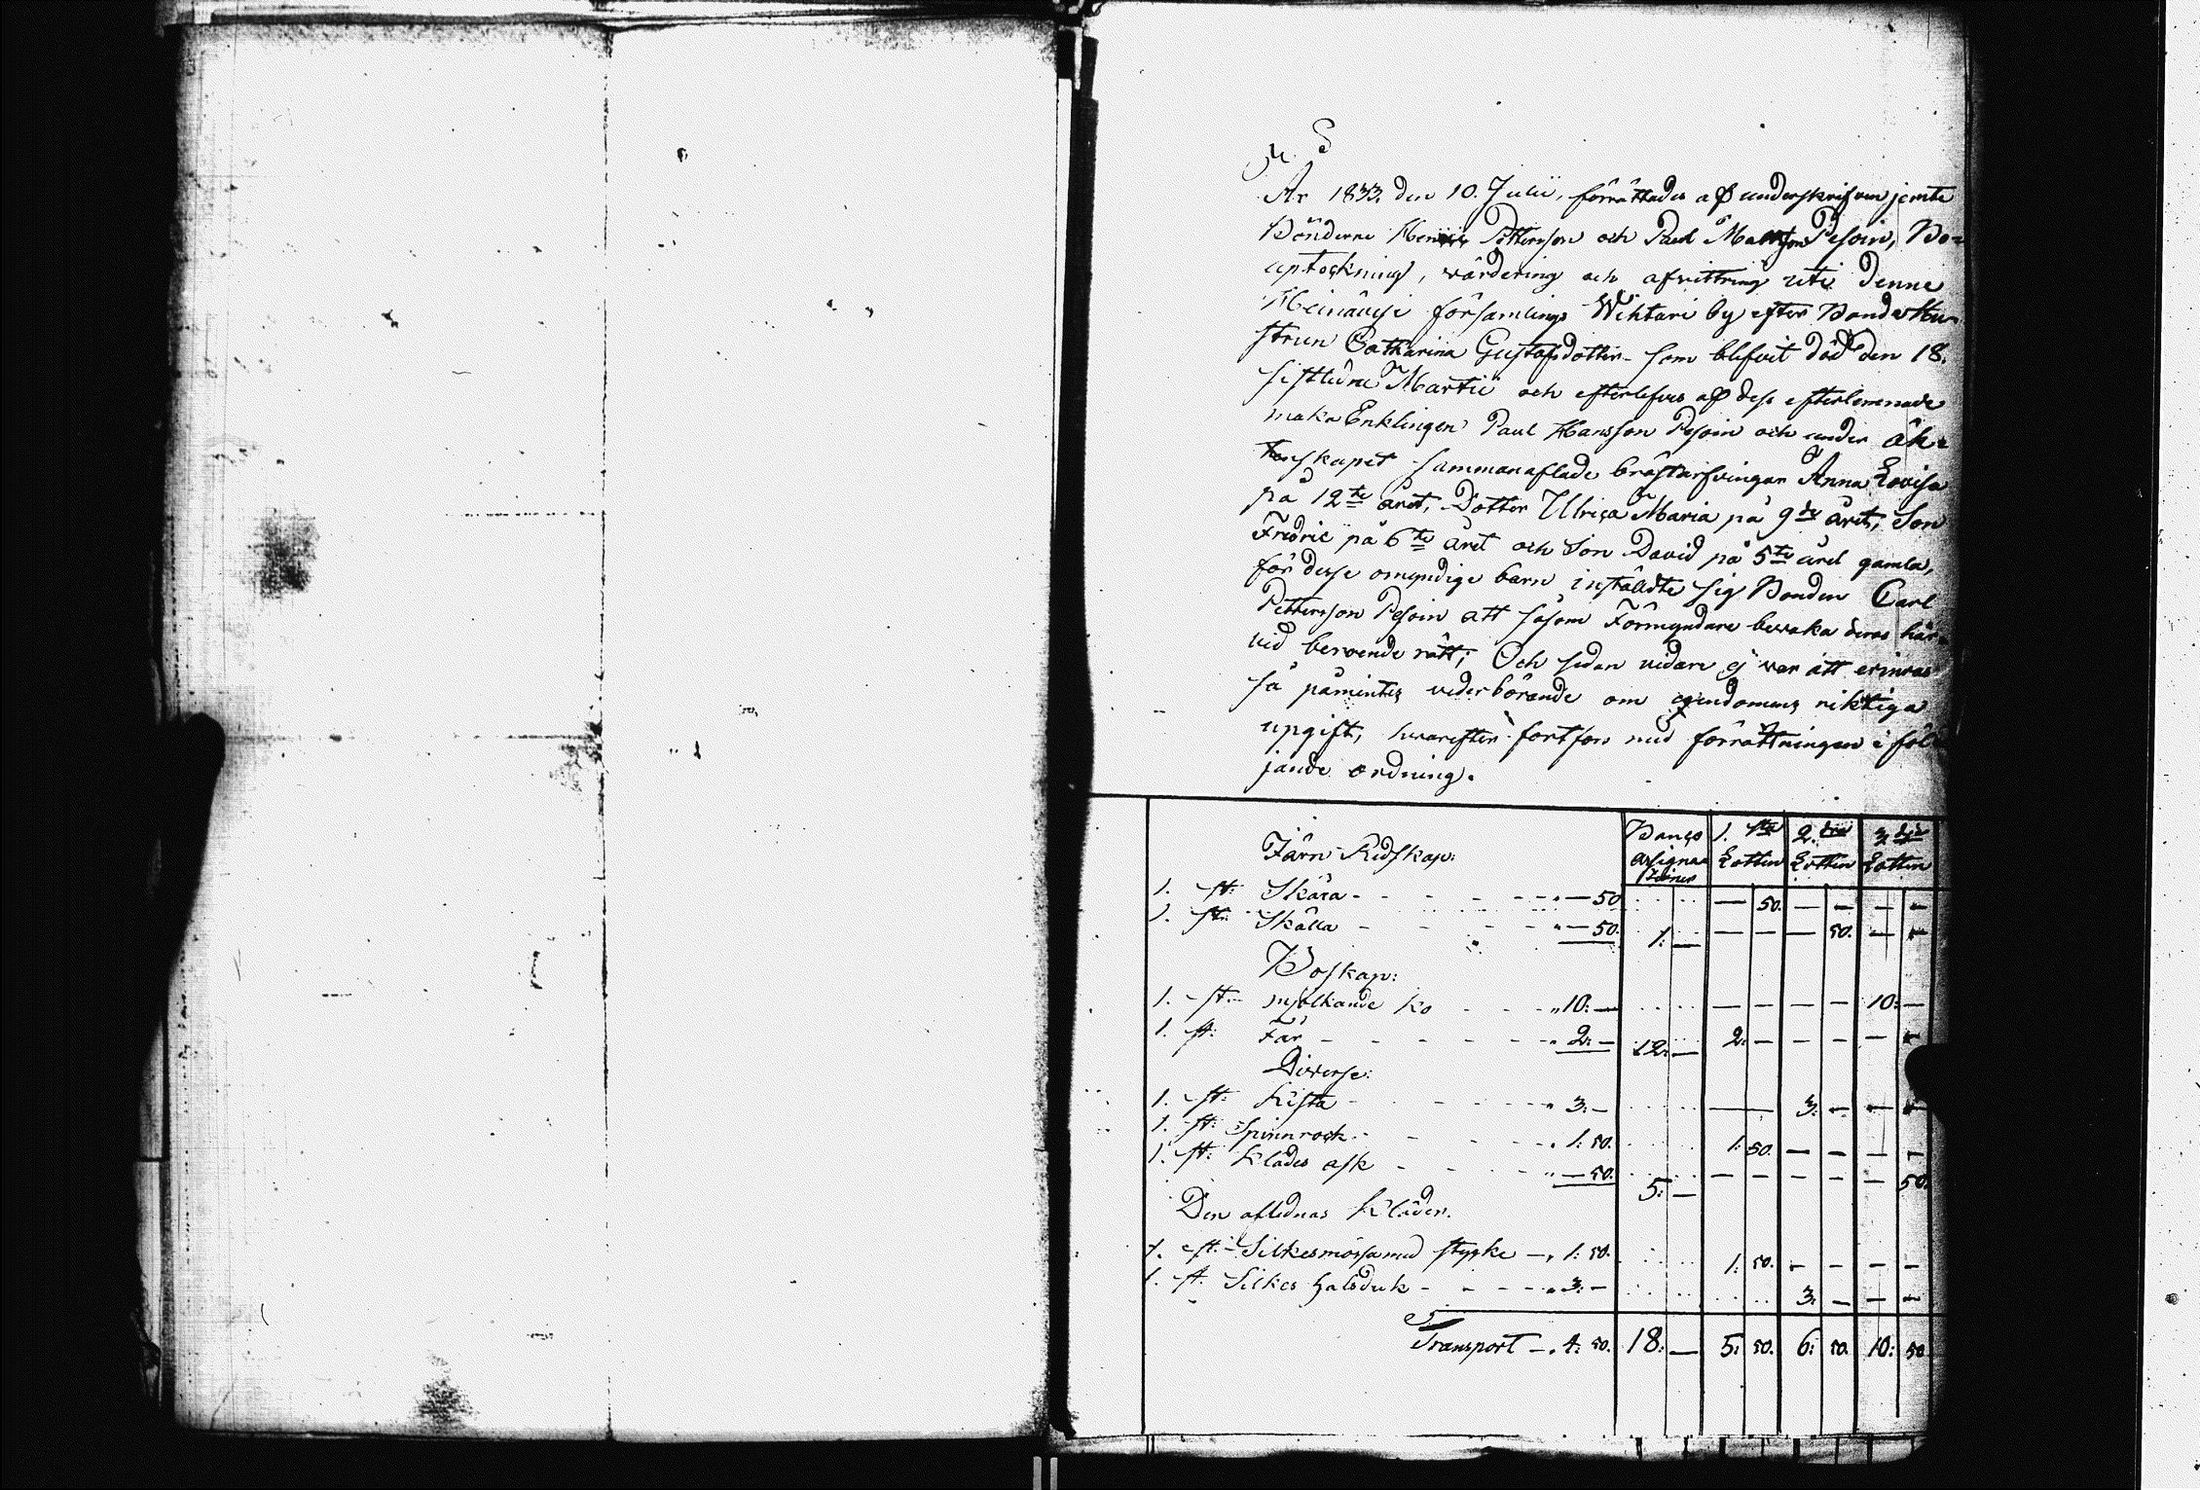 År 1833. den 10. Julii, förrättades af underskrifven jemte
Bönderne Henric Pettersson och Paul Mattsson Pesoin, Bo-
uptekning, värdering och afvittring uti denne
Heinävesi församlings Wihtari by efter Bonde Hu-
strun Catharina Gustafsdotter som blifvit död den 18.
sistledne Martii och efterlefves af dess efterlemnade
maka Enklingen Paul Hansson Pesoin och under äk-
tenskapet sammanaflade bröstarfvingar Anna Lovisa
på 12te året, Dotter Ulrica Maria på 9de året, Son
Fredric på 6te året och Son David på 5te året gamla,
för desse omyndige barn instäldte sig Bonden Carl
Pettersson Pesoin att såsom Förmyndare bevaka deras här-
vid beroende rätt; Och sedan vidare ej var att erinras
så påmintes vederbörande om egendomens riktiga
upgift, hvarefter fortfors med förrättningen i föl-
jande ordning.
Banco assigna- tioner 1. sta Lotten 2. dra Lotten 3. dje Lotten
Järn Redskap:
1. st: Skära - - - - - " — 50 — 50. — — — —
1. st: Skälla - - - - " — 50. 1: — — — — 50. — —
Boskap:
1. st: mjölkande ko - - - " 10: — — — — — 10: —
1. st: Får - - - - - " 2: — 12: — 2: — — — — —
Diverse:
1. st: Kista - - - - " 3: — — — 3: — — —
1. st: Spinnrock - - - " 1: 50. 1: 50. — — — —
1. st: Klädes ask - - - " — 50. 5: — — — — — — 50.
Den aflednas Kläder.
1. st: Silkesmössa med stycke — " 1: 50. 1: 50. — — — —
1. st. Silkes halsduk - - - - " 3: — 3: — — —
Transport — " 4: 50. 18: — 5: 50. 6: 50. 10: 50